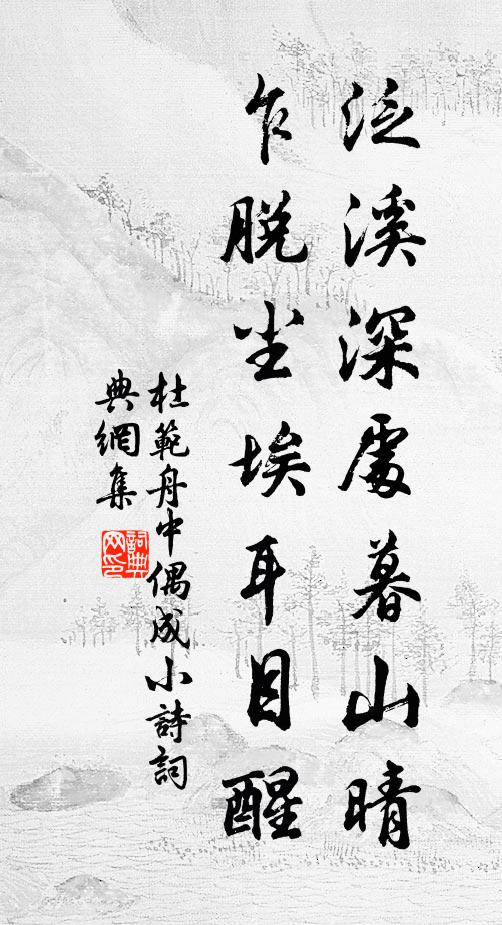 泛溪深處暮山晴
乍脫尘埃耳目醒
杜範舟中偶成小詩詞
典網集
詞典
网印